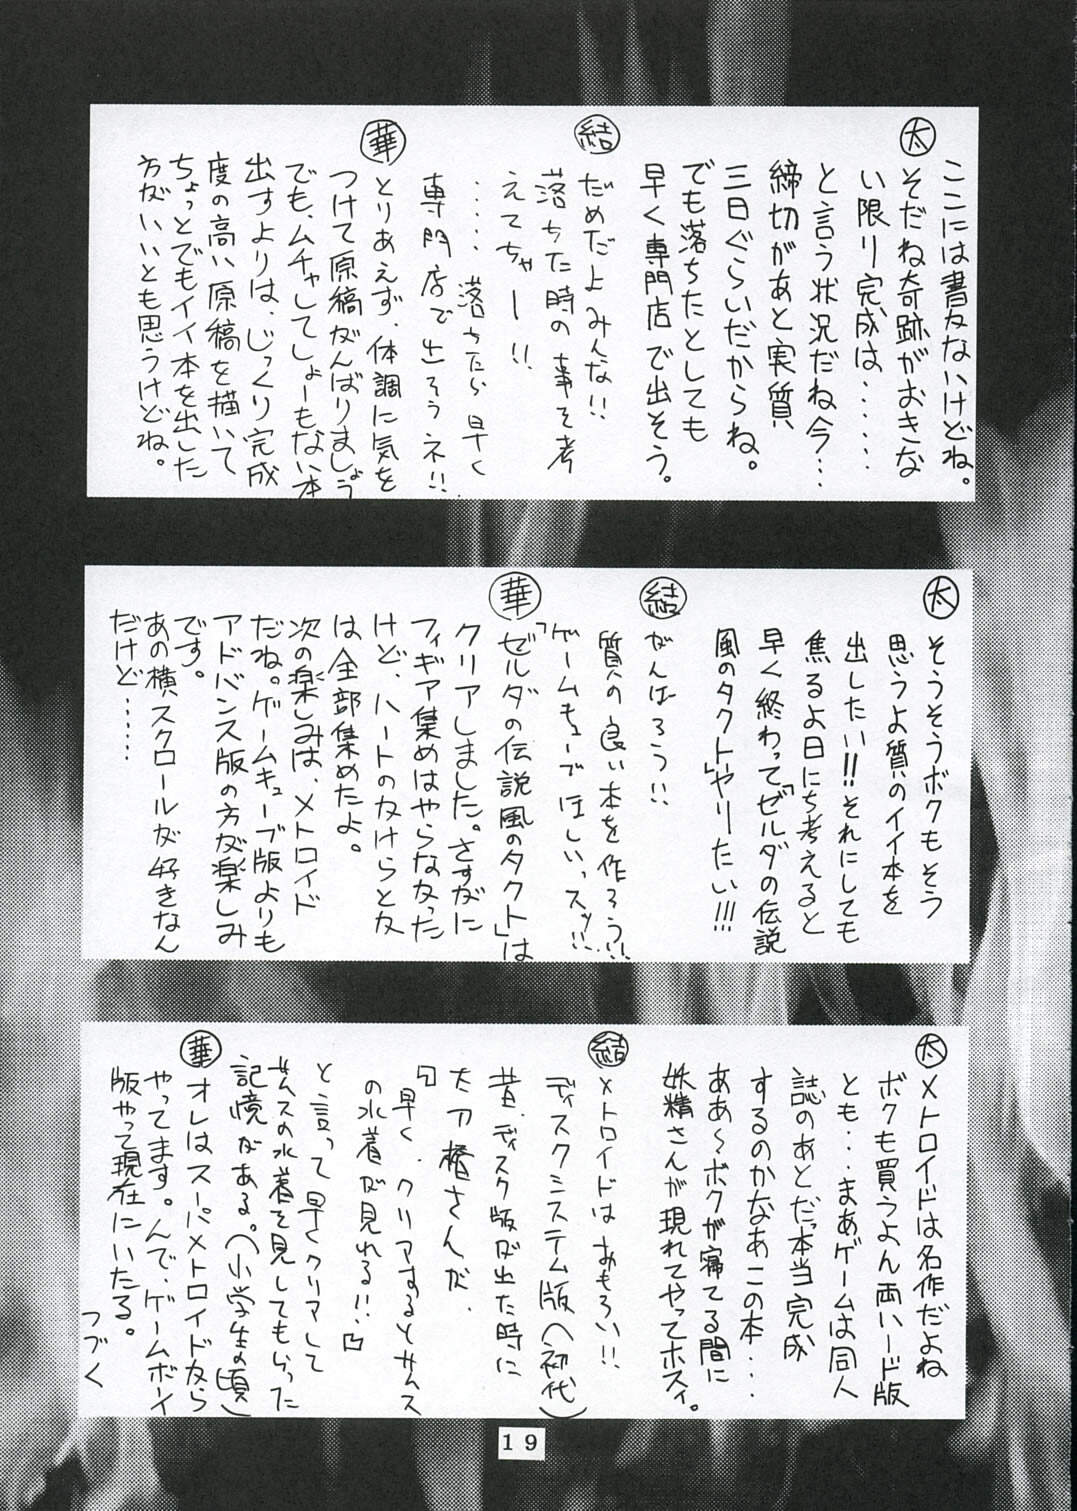 太
ここには書けないけどね。
そだね奇跡がおきな
い限り完成は・・・・・・
と言う状況だね今…
締切があと実質
三日ぐらいだからね。
でも落ちたとしても
早く専門店で出そう。
結
だめだよみんな!!
落ちた時の事を考
えてちゃー!!
・・・・落ちたら早く
専門店で出そうネ!!
華
とりあえず、体調に気を
つけて原稿がんばりましょう
でも、ムチャしてしょーもない本
出すよりは、じっくり完成
度の高い原稿を描いて
ちょっとでもイイ本を出した
方がいいとも思うけどね。
太
そうそうボクもそう
思うよ質のイイ本を
出したい!!それにしても
焦るよ日にち考えると
早く終わって「ゼルダの伝説
風のタクト」やりたい!!!
結
がんばろう!!
質の良い本を作ろう!!
「ゲームキューブ」ほしいっスッ!!
華
「ゼルダの伝説風のタクト」は
クリアしました。さすがに
フィギア集めはやらなかった
けど、ハートのかけらとか
は全部集めたよ。
次の楽しみは、メトロイド
だね。ゲームキューブ版よりも
アドバンス版の方が楽しみ
です。
あの横スクロールが好きなん
だけど……
太
メトロイドは名作だよね
ボクも買うよん両ハード版
とも…まあゲームは同人
誌のあとだっ本当完成
するのかなあこの本…
ああ〜ボクが寝てる間に
妖精さんが現れてやってホスィ。
結
メトロイドはおもろい!!
ディスクシステム版(初代)
昔、ディスク版が出た時に
太刀椿さんが、
『早く、クリアするとサムス
の水着が見れる!!』
と言って早くクリアして
サムスの水着を見してもらった
記憶がある。(小学生の頃)
華
オレはスーパーメトロイドから
やってます。んで、ゲームボーイ
版やって現在にいたる。
つづく
19